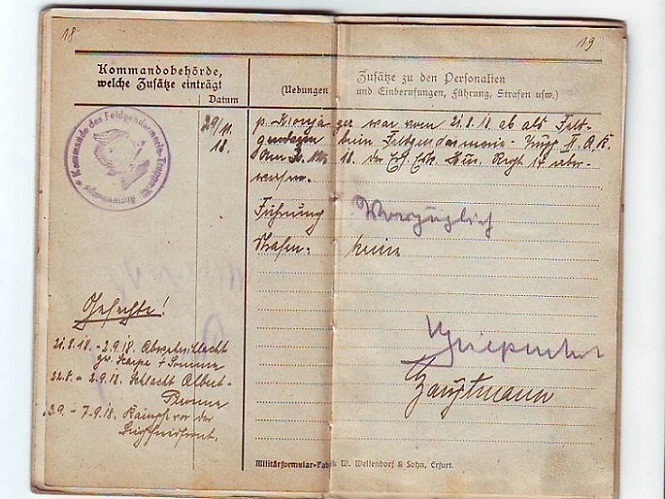 18
19
Kommandobehörde,
welche Zusätze einträgt
Datum
(Uebungen
Zusätze zu den Personalien
und Einberufungen, Führung, Strafen usw.)
Kommando des Feldgendarmerie-Trupps
29/11.
18.
war vom 21.8.18. ab als Feld-
gendarm beim Feldgendarmerie-Trupp A.O.K.
18. der
Führung Vorzüglich
Strafen: keine
Hauptmann
Gefechte!
21.8.18. - 2.9.18. Abwehrschlacht
Scarpe + Somme
22.8. - 2.9.18. Schlacht Albert-
Peronne
3.9. - 7.9.18. Kämpfe vor der
Siegfriedfront.
Militärformular-Fabrik W. Wellendorf & Sohn, Erfurt.